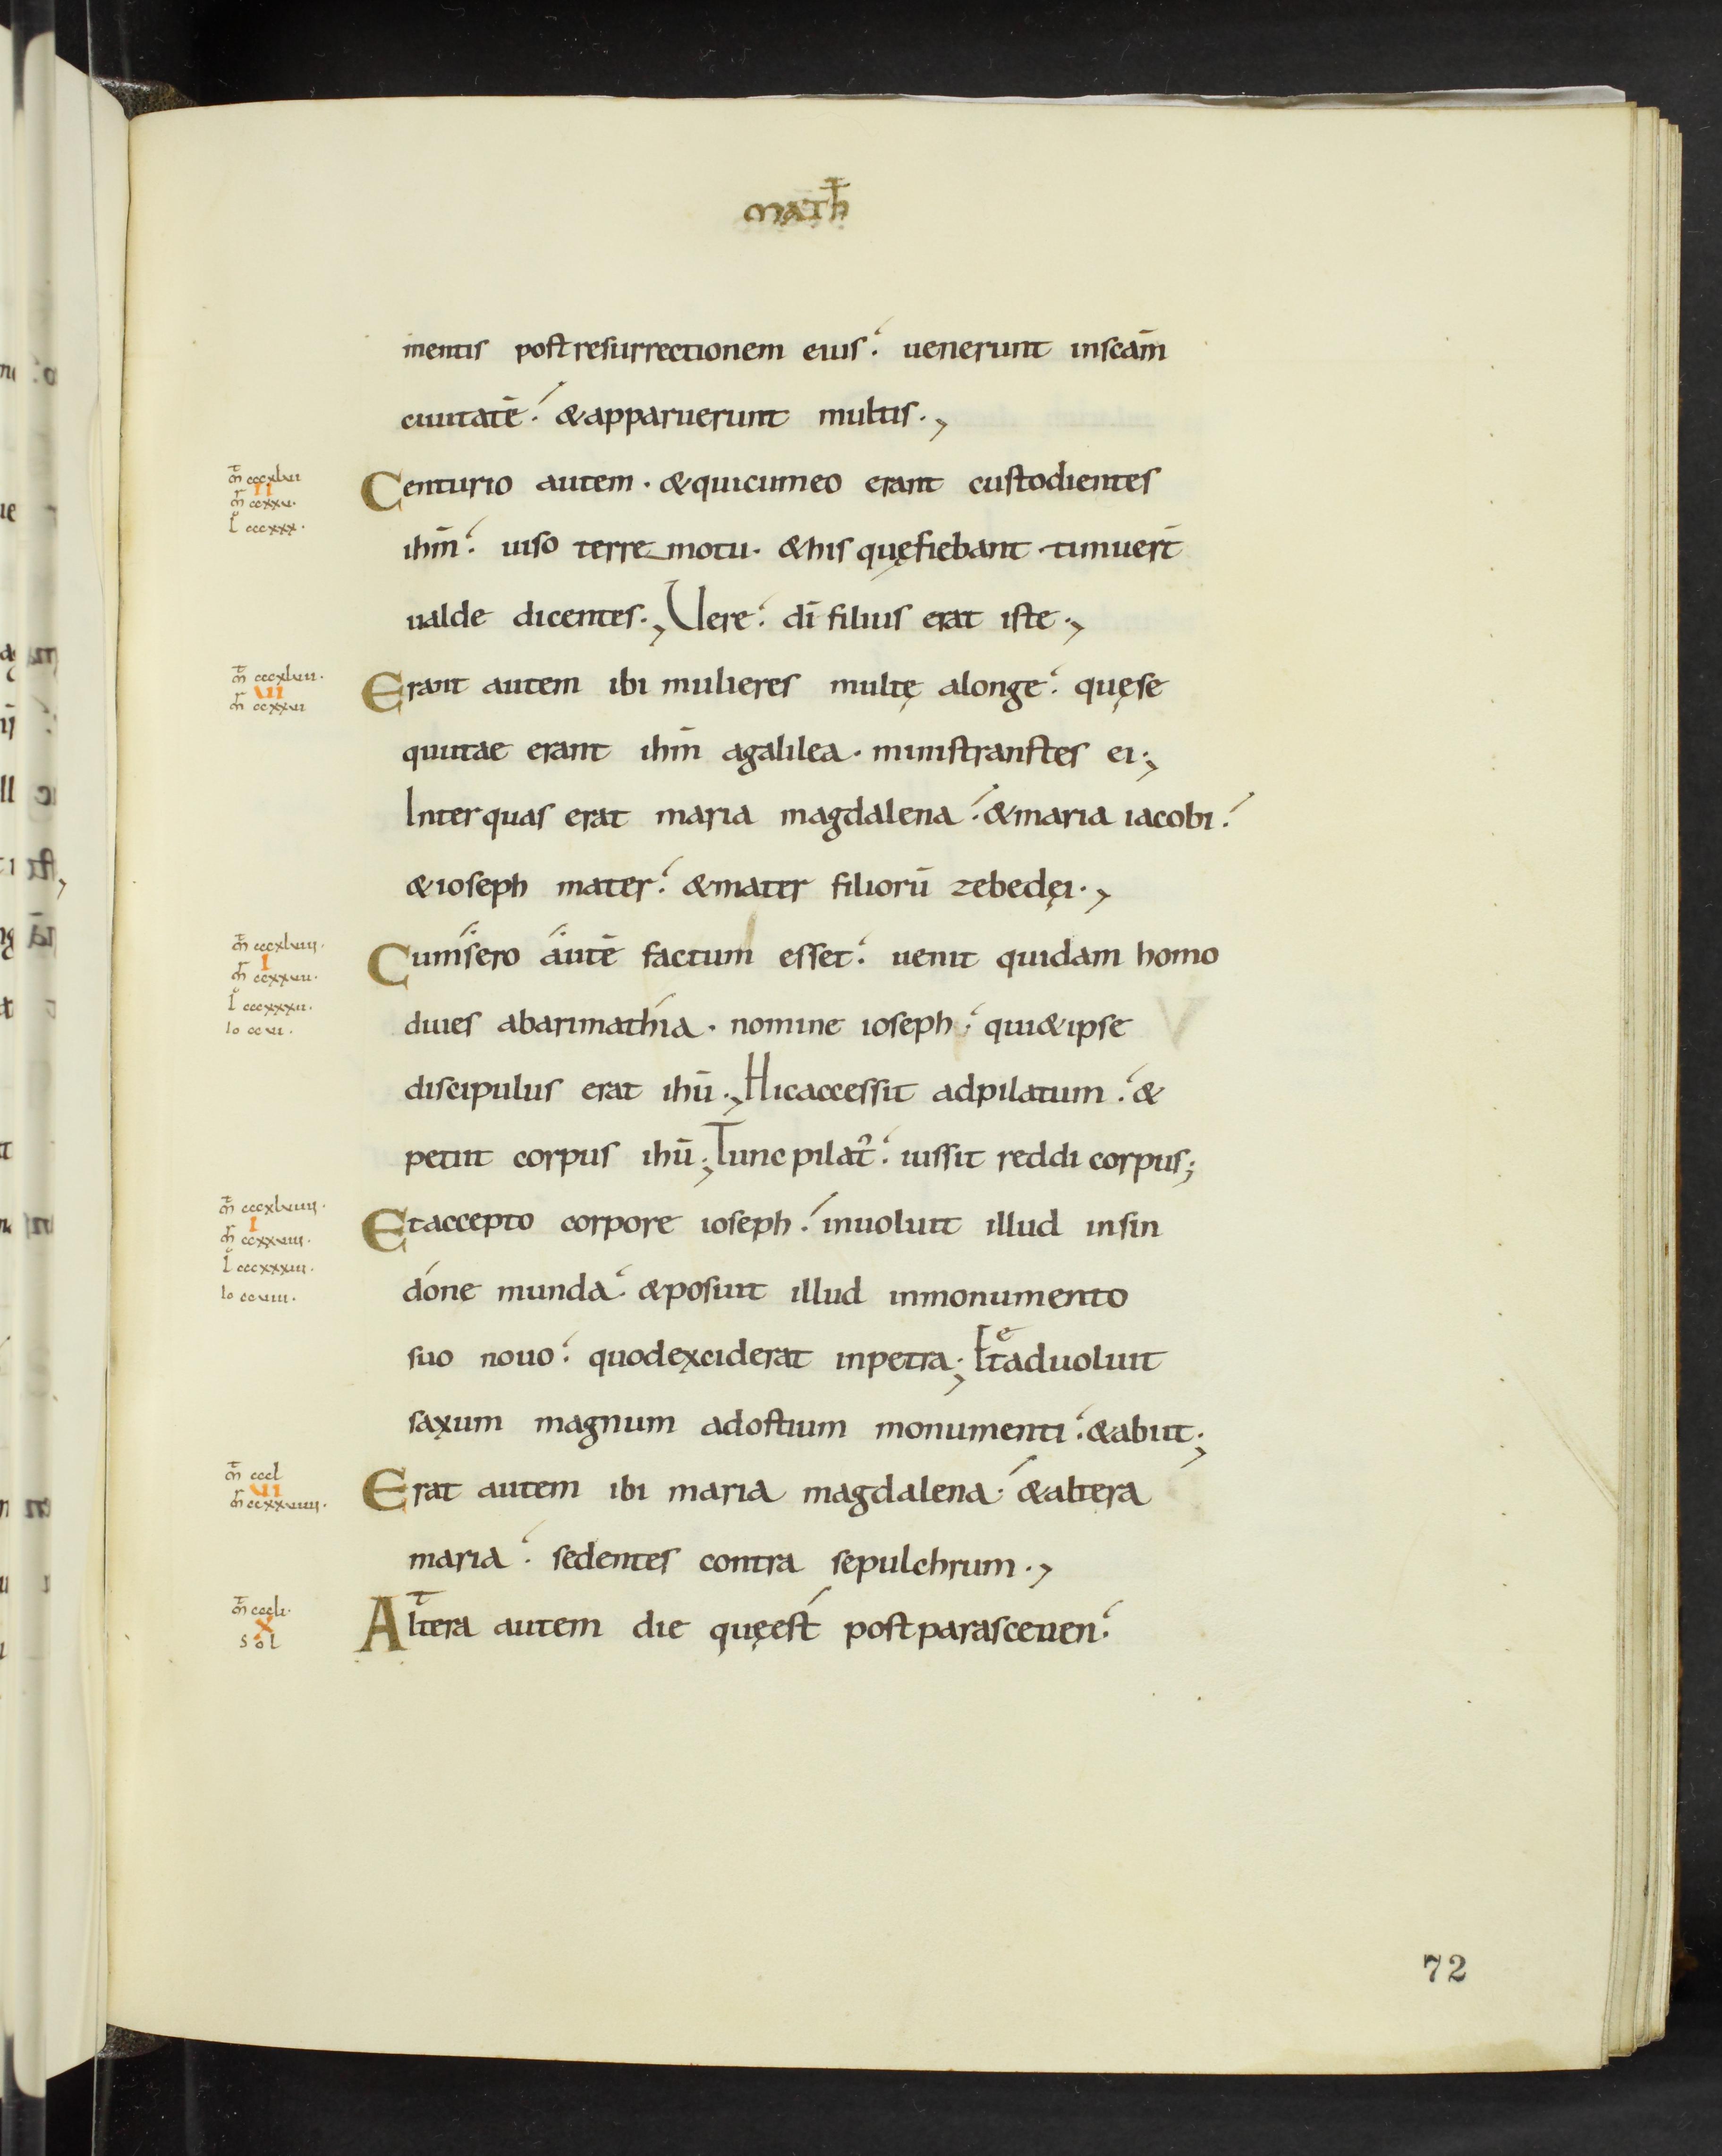 math̄
mentis post resurrectionem eius. uenerunt inscām
ciuitatē. & apparuerunt multis.,
m̄ cccxlvi
II
m̄ ccxxv.
L cccxxx.
Centurio autem. & quicumeo erant custodientes
ihm̄. uiso terre motu. & his quęfiebant. timuer̄t
ualde dicentes., Uere. dī filius erat iste.,
m̄ cccxlvii.
VII
m̄ ccxxvi
Erant autem ibi mulieres multę alonge. quęse
quutae erant ihm̄ agalilea. ministranstes ei.,
Inter quas erat maria magdalena. & maria iacobi.
& ioseph mater. & mater filiorū zebedęi.,
m̄ cccxlviii.
I
m̄ ccxxvii.
L cccxxxii.
Io ccvi.
Cum sero autē factum esset. uenit quidam homo
diues abarimathia. nomine ioseph. qui & ipse
discipulus erat ihū., Hic accessit adpilatum. &
petiit corpus ihū., Tunc pilat᾽. iussit reddi corpus;
m̄ cccxlviiii.
I
m̄ ccxxviii.
L cccxxxiii.
Io ccviii.
Et accepto corpore ioseph. inuoluit illud insin
done munda. & posuit illud inmonumento
suo nouo. quodexciderat inpetra., Et aduoluit
saxum magnum adostium monumenti. & abiit.,
m̄ cccl
VII
m̄ ccxxviiii.
Erat autem ibi maria magdalena. & altera
maria. sedentes contra sepulchrum.,
m̄ cccli.
X
sol
Altera autem die quęest post parasceuen.
72